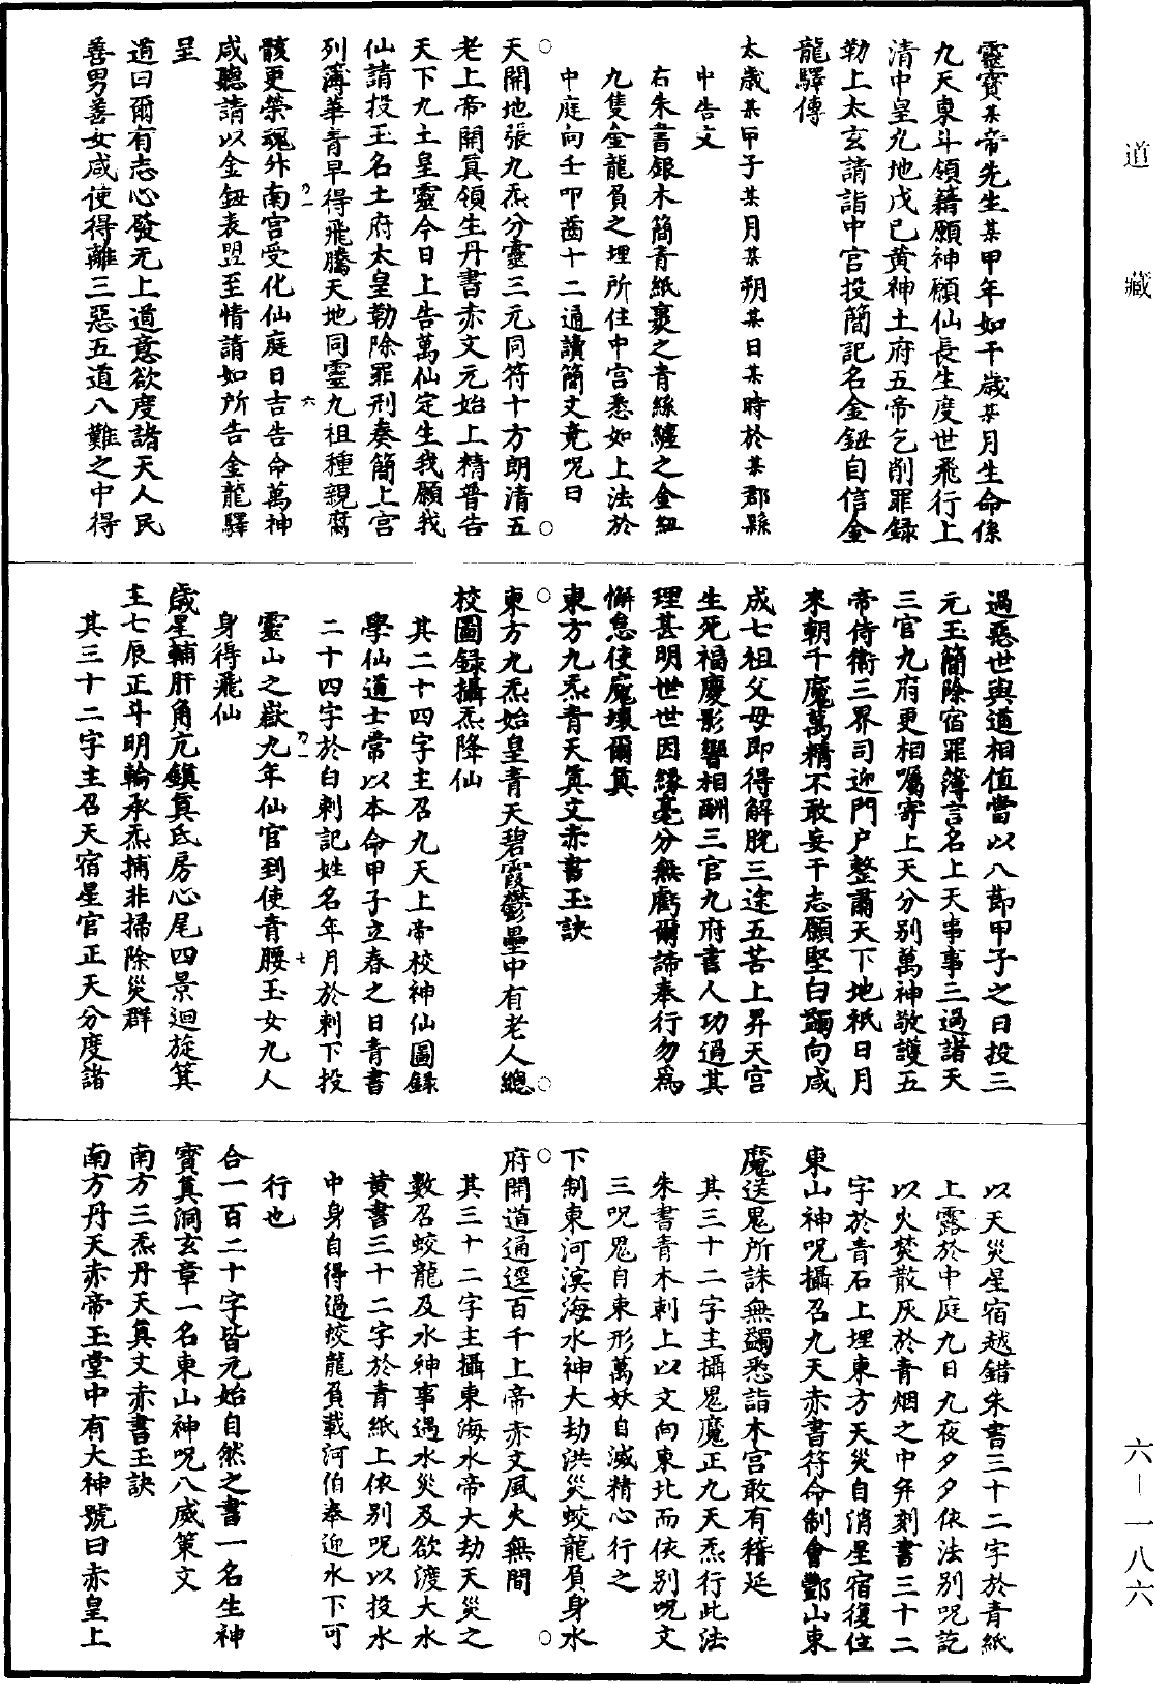 道藏
靈寶某帝先生某甲年如干歲某月生命係
九天東斗領籍願神願仙長生度世飛行上
清中皇九地戊己黃神土府五帝乞削罪錄
勒上太玄請詣中宮投簡記名金鈕自信金
龍驛傳
太歲某甲子某月某朔某日某時於某郡縣
中告文
右朱書銀木簡青紙裹之青絲纏之金鈕
九隻金龍負之埋所住中宮悉如上法於
中庭向壬叩齒十二通讀簡文竟呪曰
天開地張九炁分靈三元同符十方朗清五
老上帝開真領生丹書赤文元始上精普告
天下九土皇靈今日上告萬仙定生我願我
仙請投玉名土府太皇勒除罪刑奏簡上宮
列簿華青早得飛騰天地同靈九祖種親腐
骸更榮魂升南宮受化仙庭日吉告命萬神
咸聽請以金鈕表盟至情請如所告金龍驛
呈
道曰爾有志心發无上道意欲度諸天人民
善男善女咸使得離三惡五道八難之中得
過惡世與道相值當以八節甲子之日投三
元玉簡除宿罪簿言名上天事事三過諸天
三官九府更相囑寄上天分別萬神敬護五
帝侍衛三界司迎門戶整肅天下地祇日月
來朝千魔萬精不敢妄干志願堅白蠲向咸
成七祖父母即得解脫三途五苦上昇天宮
生死福慶影響相酬三官九府書人功過其
理甚明世世因緣毫分無虧爾諦奉行勿為
懈怠使魔壞爾真
東方九炁青天真文赤書玉訣
東方九炁始皇青天碧霞鬱壘中有老人總
校圖錄攝炁降仙
其二十四字主召九天上帝校神仙圖錄
學仙道士常以本命甲子立春之日青書
二十四字於白刺記姓名年月於刺下投
靈山之嶽九年仙官到使青腰玉女九人
身得飛仙
歲星輔肝角亢鎮真氐房心尾四景迴旋箕
主七辰正斗明輪承炁捕非掃除災群
其三十二字主召天宿星官正天分度諸
以天災星宿越錯朱書三十二字於青紙
上露於中庭九日九夜夕夕依法別呪訖
以火焚散灰於青烟之中并刻書三十二
字於青石上埋東方天災自消星宿復位
東山神呪攝召九天赤書符命制會酆山東
魔送鬼所誅無蠲悉詣木宮敢有稽延
其三十二字主攝鬼魔正九天炁行此法
朱書青木刺上以文向東北而依別呪文
三呪鬼自束形萬妖自滅精心行之
下制東河溟海水神大劫洪災蛟龍負身水
府開道通逕百千上帝赤文風火無間
其三十二字主攝東海水帝大劫天災之
數召蛟龍及水神事過水災及欲渡大水
黃書三十二字於青紙上依別呪以投水
中身自得過蛟龍負載河伯奉迎水下可
行也
合一百二十字皆元始自然之書一名生神
寶真洞玄章一名東山神呪八威策文
南方三炁丹天真文赤書玉訣
南方丹天赤帝玉堂中有大神號曰赤皇上
六—一八六